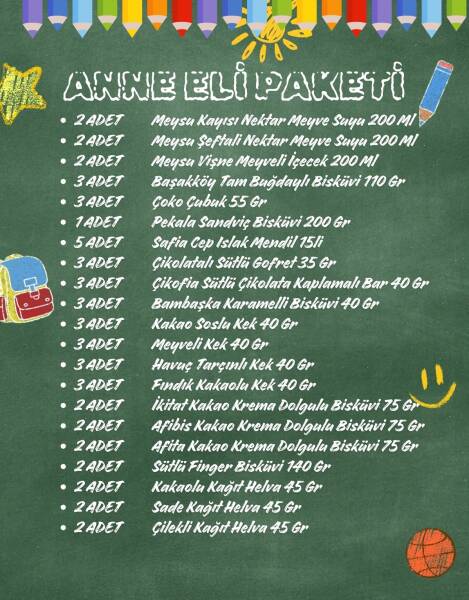 ANNE ELİ PAKETİ
• 2 ADET Meysu Kayısı Nektar Meyve Suyu 200 Ml
• 2 ADET Meysu Şeftali Nektar Meyve Suyu 200 Ml
• 2 ADET Meysu Vişne Meyveli İçecek 200 Ml
• 3 ADET Başakköy Tam Buğdaylı Bisküvi 110 Gr
• 3 ADET Çoko Çubuk 55 Gr
• 1 ADET Pekala Sandviç Bisküvi 200 Gr
• 5 ADET Safia Cep Islak Mendil 15li
• 3 ADET Çikolatalı Sütlü Gofret 35 Gr
• 3 ADET Çikofia Sütlü Çikolata Kaplamalı Bar 40 Gr
• 3 ADET Bambaşka Karamelli Bisküvi 40 Gr
• 3 ADET Kakao Soslu Kek 40 Gr
• 3 ADET Meyveli Kek 40 Gr
• 3 ADET Havuç Tarçınlı Kek 40 Gr
• 3 ADET Fındık Kakaolu Kek 40 Gr
• 2 ADET İkitat Kakao Krema Dolgulu Bisküvi 75 Gr
• 2 ADET Afibis Kakao Krema Dolgulu Bisküvi 75 Gr
• 2 ADET Afita Kakao Krema Dolgulu Bisküvi 75 Gr
• 2 ADET Sütlü Finger Bisküvi 140 Gr
• 2 ADET Kakaolu Kağıt Helva 45 Gr
• 2 ADET Sade Kağıt Helva 45 Gr
• 2 ADET Çilekli Kağıt Helva 45 Gr